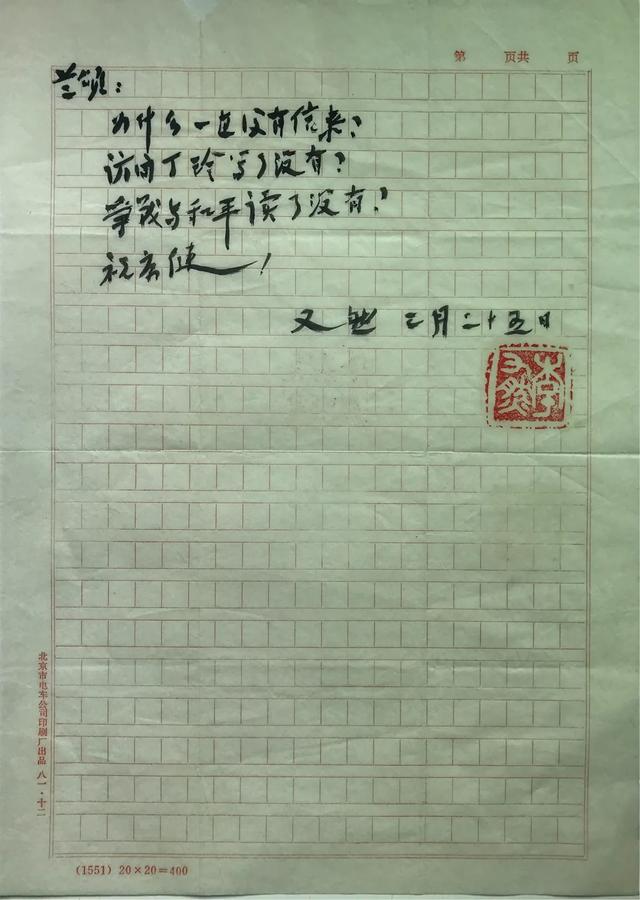 第　页共　页
兰颂：
为什么一直没有信来？
访问丁玲写了没有？
争战与和平读了没有？
祝
健！
又然 三月二十五日
李又然
北京市电车公司印刷厂出品 八一·十二
(1551) 20×20=400